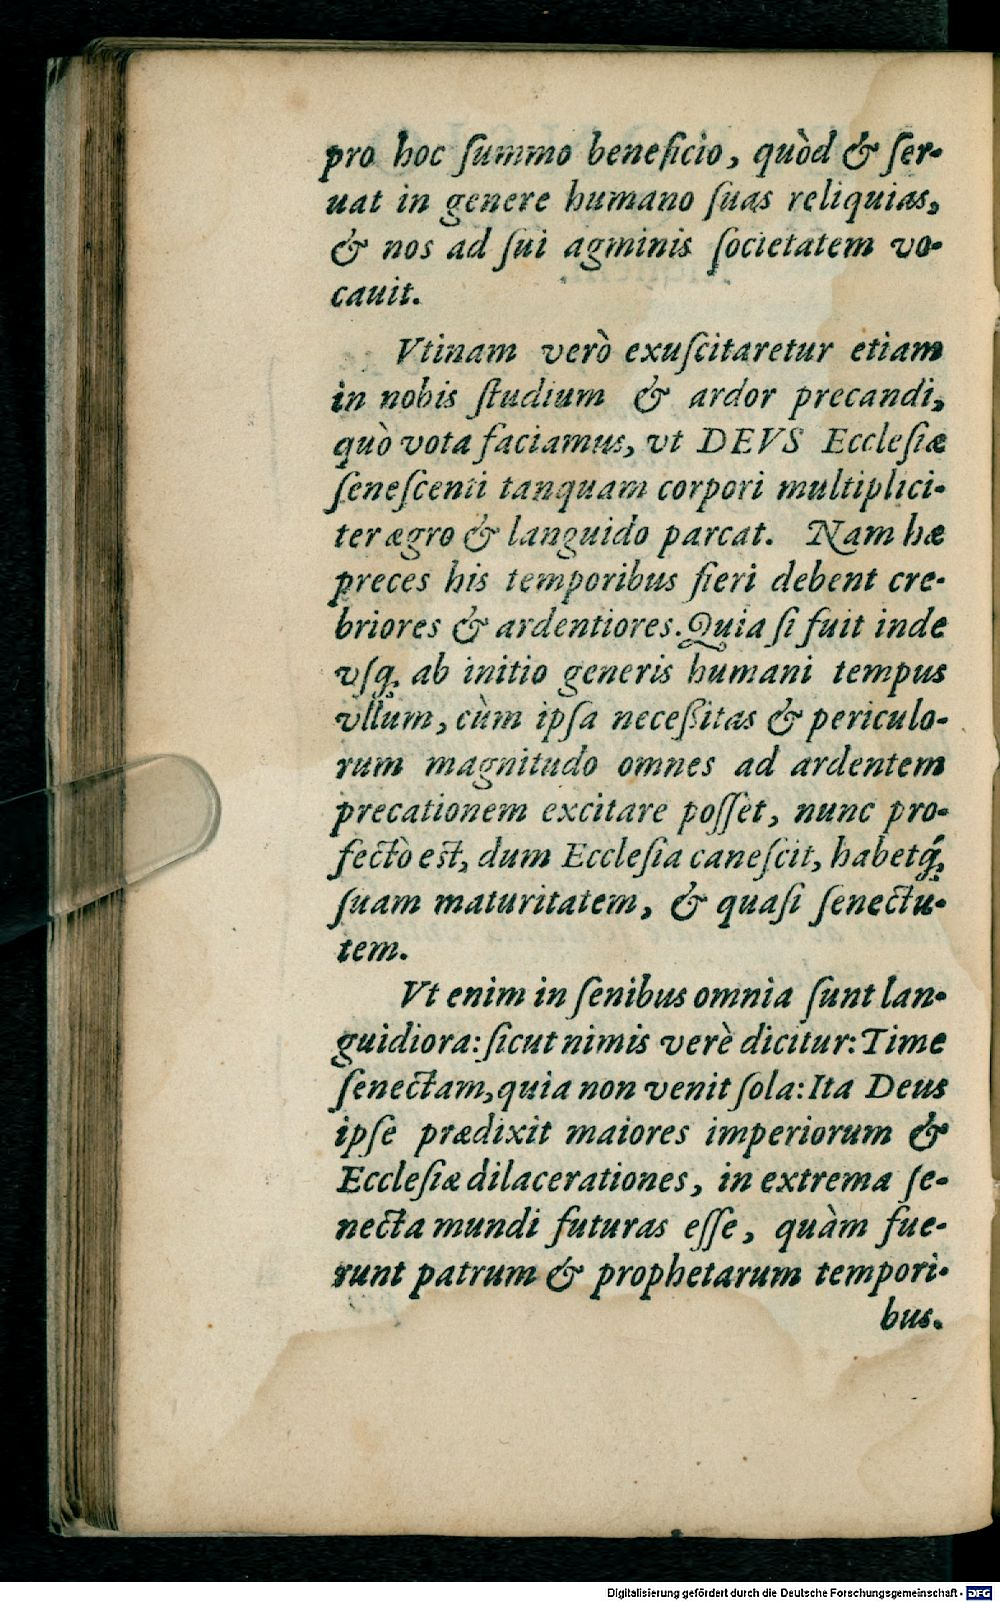 pro hoc ſummo beneficio, quòd & ſer-
uat in genere humano ſuas reliquias,
& nos ad ſui agminis ſocietatem vo-
cauit.
Vtinam verò exuſcitaretur etiam
in nobis ſtudium & ardor precandi,
quò vota faciamus, vt DEVS Eccleſiæ
ſeneſcenti tanquam corpori multiplici-
ter ægro & languido parcat. Nam hæ
preces his temporibus fieri debent cre-
briores & ardentiores. Quia ſi fuit inde
vſq; ab initio generis humani tempus
vllum, cùm ipſa neceßitas & periculo-
rum magnitudo omnes ad ardentem
precationem excitare poſſet, nunc pro-
fectò eſt, dum Eccleſia caneſcit, habetq́;
ſuam maturitatem, & quaſi ſenectu-
tem.
Vt enim in ſenibus omnia ſunt lan-
guidiora: ſicut nimis verè dicitur: Time
ſenectam, quia non venit ſola: Ita Deus
ipſe prædixit maiores imperiorum &
Eccleſiæ dilacerationes, in extrema ſe-
necta mundi futuras eſſe, quàm fue-
runt patrum & prophetarum tempori-
bus.
Digitalisierung gefördert durch die Deutsche Forschungsgemeinschaft - DFG